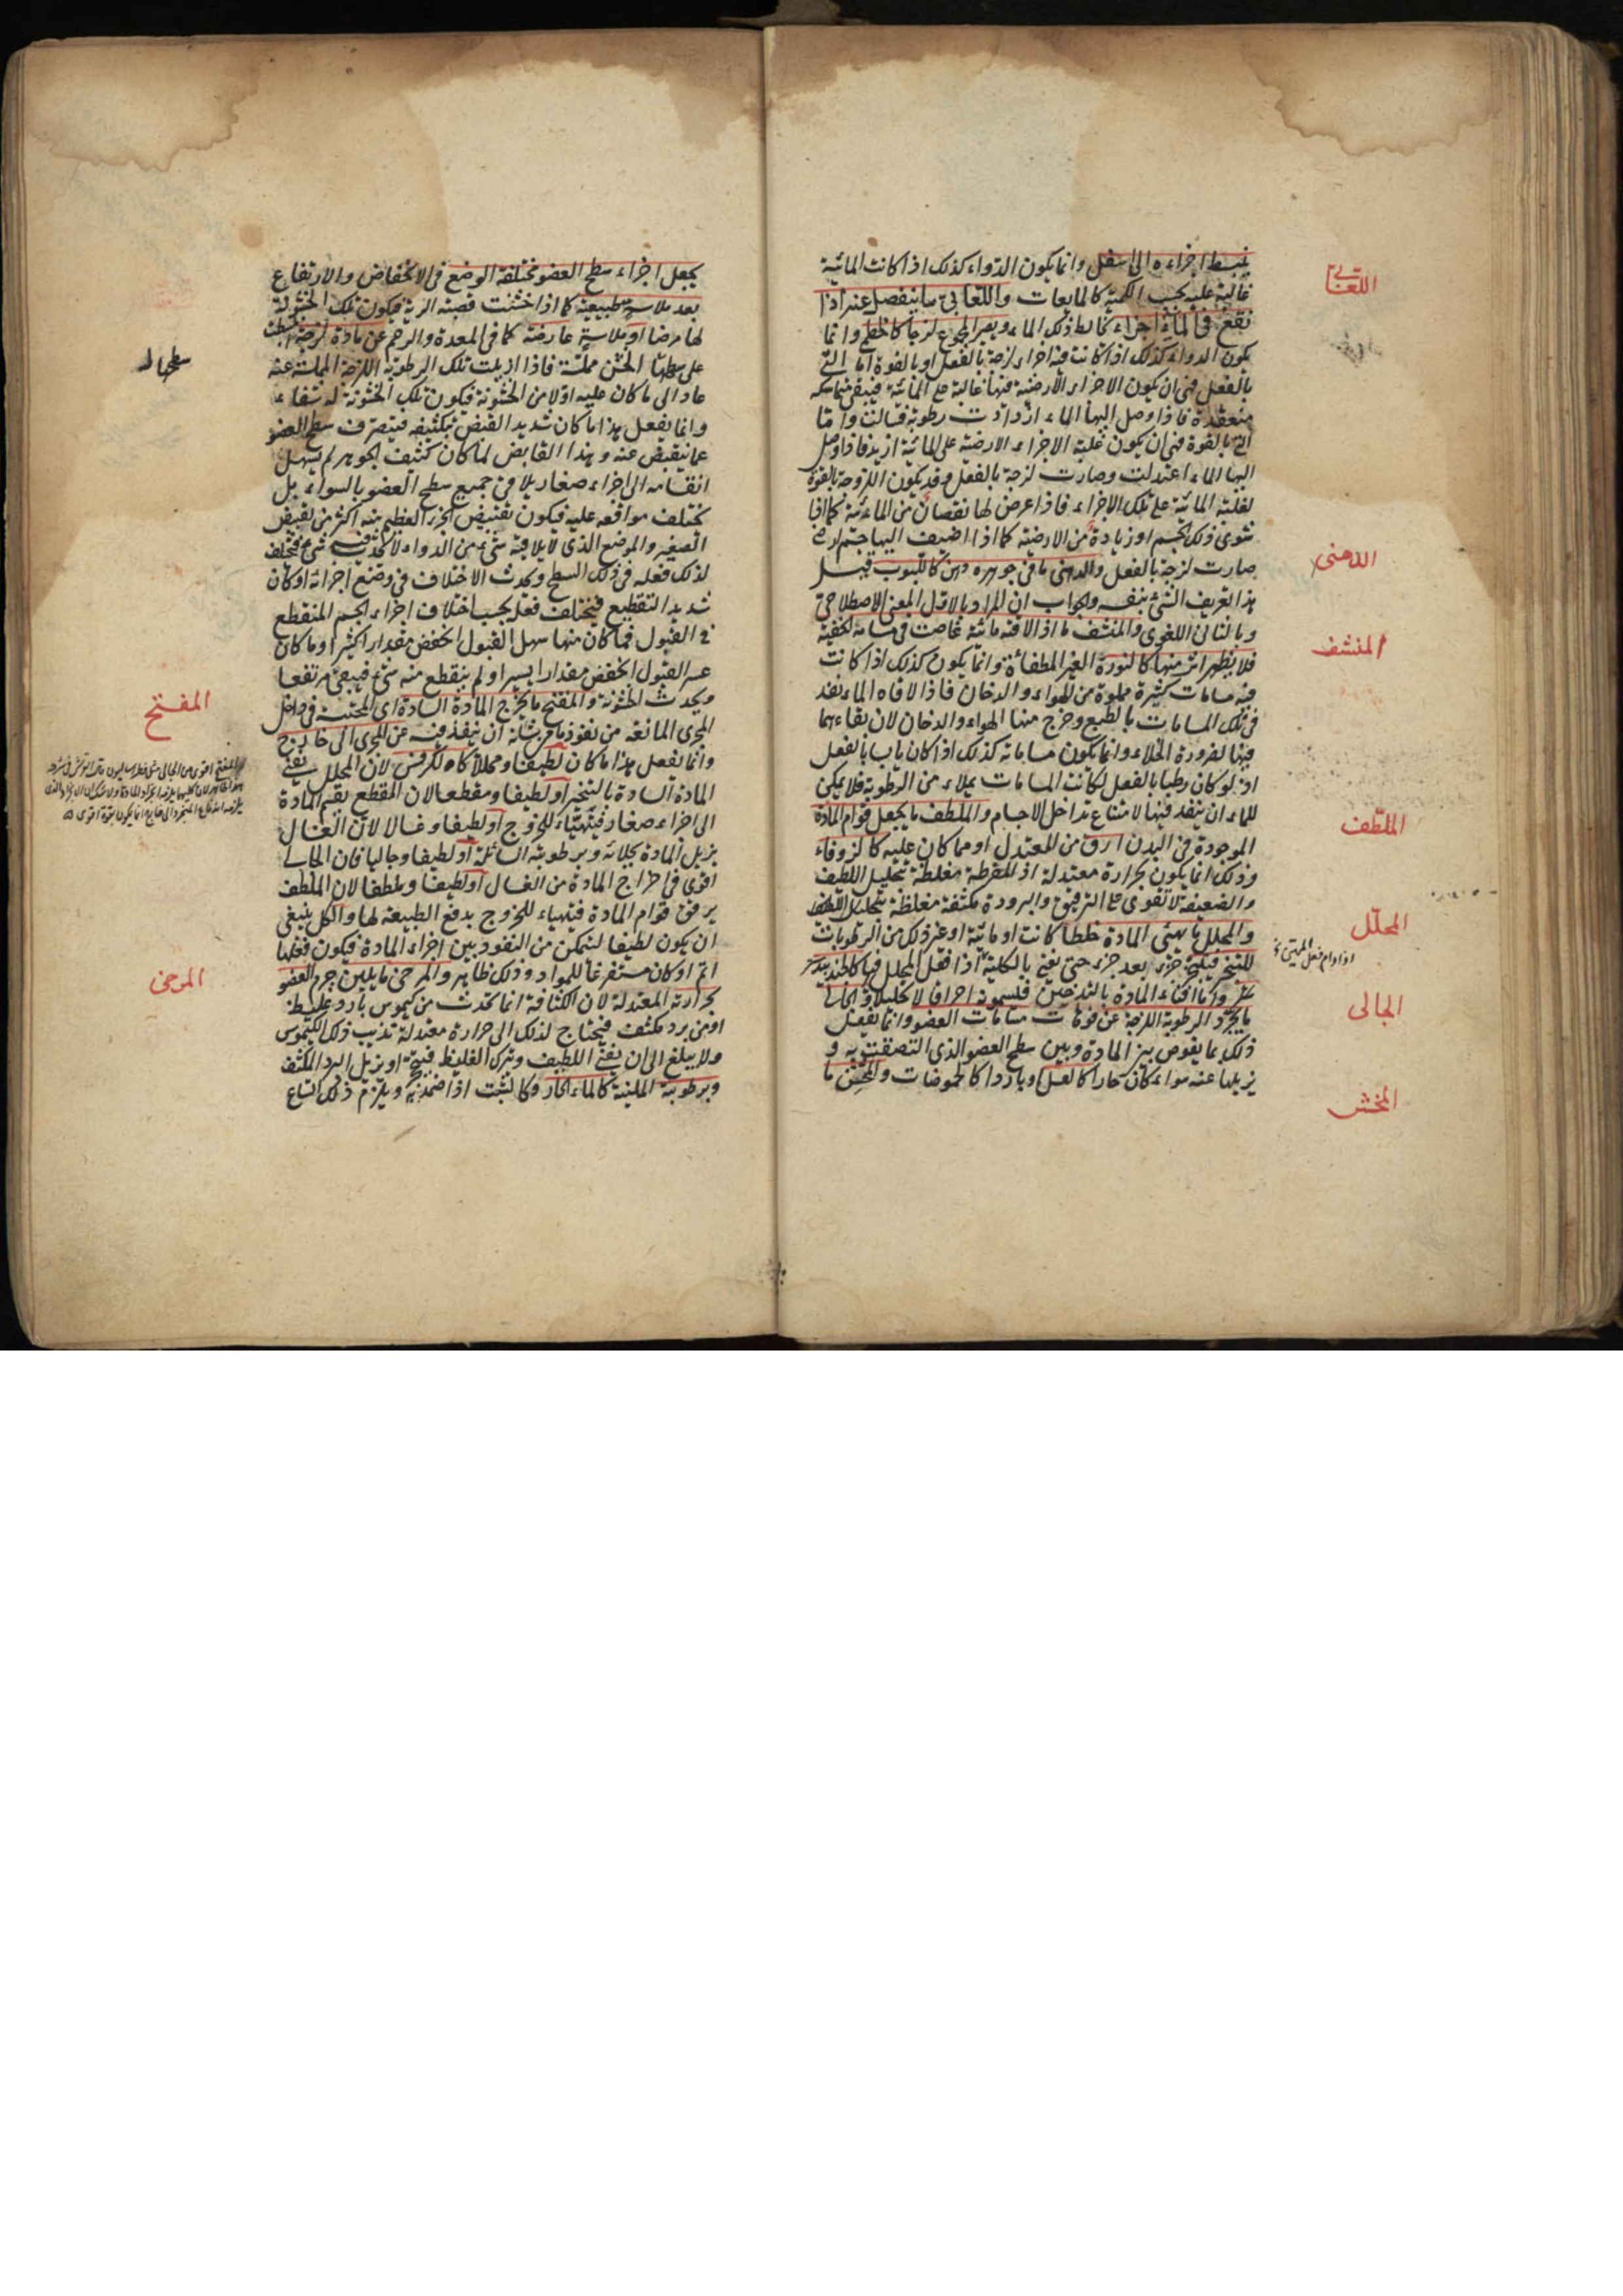 ينبسط اجزاءه الى اسفل وانما يكون الدواء كذلك اذا كانت المائية
اللعابي
غالبة عليه بحسب الكمية كالمايعات واللعابي ما ينفصل عنه اذا
نقع في الماء اجزاء تخالط ذلك الماء ويصير المجموع لزجا كالخطمي وانما
يكون الدواء كذلك اذا كانت فيه اجزاء لزجة بالفعل او بالقوة اما التي
بالفعل فهي ان يكون الاجزاء الارضية فيها غالبة على المائية فيبقى متماسكة
منعقدة فاذا وصل اليها الماء ازدادت رطوبة فسالت واما
التي بالقوة فهي ان يكون غلبة الاجزاء الارضية على المائية ازيد فاذا وصل
اليها الماء اعتدلت وصارت لزجة بالفعل وقد يكون اللزوجة بالقوة
لغلبة المائية على تلك الاجزاء فاذا عرض لها نقصان من المائية كما اذا
شوى ذلك الجسم او زيادة من الارضية كما اذا اضيف اليها جسم ارضي
صارت لزجة بالفعل والدهني ما في جوهره دهن كاللبوب قيل
الدهني
هذا تعريف الشئ بنفسه والجواب ان المراد بالاول المعنى الاصطلاحي
وبالثاني اللغوي والمنشف ما اذا لاقته مائية غاصت في مسامه الخفية
المنشف
فلا يظهر اثر منها كالنورة الغير المطفاءة وانما يكون كذلك اذا كانت
فيه مسامات كثيرة مملوة من الهواء والدخان فاذا لاقاه الماء نفذ
في تلك المسامات بالطبع وخرج منها الهواء والدخان لان بقاءهما
فيها لضرورة الخلاء وانما يكون مساماته كذلك اذا كان يابسا بالفعل
اذ لو كان رطبا بالفعل لكانت المسامات مملاء من الرطوبة فلا يمكن
للماء ان ينفذ فيها لامتناع تداخل الاجسام والملطف ما يجعل قوام المادة
الملطف
الموجودة في البدن ارق من المعتدل او مما كان عليه كالزوفاء
وذلك انما يكون بحرارة معتدلة اذ المفرطة مغلظة بتحليل اللطيف
والضعيفة لا تقوى على الترقيق والبرودة مكثفة مغلظة بتحليل اللطيف
والمحلل ما يهئ المادة خلطا كانت او مائية او غير ذلك من الرطوبات
المحلل
للتبخر فيتبخر جزء بعد جزء حتى يفنى بالكلية اذا فعل المحلل فيها كالجندبيدستر
اذا دام فعل المهيئ
واما افناء المادة بالتدخين فيسمونه احراقا لا تحليلا والجالي
الجالي
ما يجرد الرطوبة اللزجة عن فوهات مسامات العضو وانما يفعل
ذلك بما يغوص بين المادة وبين سطح العضو الذي التصقت به و
يزيلها عنه سواء كان حارا كالعسل او باردا كالحموضات والمخشن ما
المخشن
يجعل اجزاء سطح العضو مختلفة الوضع في الانخفاض والارتفاع
بعد ملاسة طبيعية كما اذا خشنت قصبة الرية فيكون تلك الخشونة
لها مرضا او ملاسة عارضة كما في المعدة والرحم عن مادة لزجة انبسطت
على سطحها الخشن مملسة فاذا ازيلت تلك الرطوبة اللزجة المملسة عنه
سطحها
عاد الى ما كان عليه اولا من الخشونة فيكون تلك الخشونة له شفاء
وانما يفعل هذا ما كان شديد القبض بتكثيفه فيتصرف سطح العضو
عما ينقبض عنه وهذا القابض لما كان كثيف الجوهر لم يسهل
انقسامه الى اجزاء صغار يلاقي جميع سطح العضو بالسواء بل
يختلف مواقعه عليه فيكون تقبيض الجزء العظيم منه اكثر من تقبيض
الصغير والموضع الذي لا يلاقيه شئ من الدواء لا يحدث فيه شئ فيختلف
لذلك فعله في ذلك السطح ويحدث الاختلاف في وضع اجزائه او كان
شديد التقطيع فيختلف فعله بحسب اختلاف اجزاء الجسم المنقطع
في القبول فما كان منها سهل القبول انخفض مقدارا كثيرا وما كان
عسر القبول انخفض مقدارا يسيرا ولم ينقطع منه شئ فيبقى مرتفعا
ويحدث الخشونة والمفتح ما يخرج المادة السادة اي المحتبسة في داخل
المفتح
المجرى المانعة من نفوذ ما من شانه ان ينفذ فيه عن المجرى الى خارج
وانما يفعل هذا ما كان لطيفا ومحللا كالكرفس لان المحلل يفني
المادة السادة بالتبخير او لطيفا ومقطعا لان المقطع يقسم المادة
الى اجزاء صغار فيتهياء للخروج او لطيفا وغسالا لان الغسال
يزيل المادة بجلائه وبرطوبته السائلة او لطيفا وجاليا فان الجالي
اقوى في اخراج المادة من الغسال او لطيفا وملطفا لان الملطف
يرقق قوام المادة فيتهياء للخروج بدفع الطبيعة لها والكل ينبغي
ان يكون لطيفا ليتمكن من النفوذ بين اجزاء المادة فيكون فعلها
اتم او كان مستفرغا للمواد وذلك ظاهر والمرخي ما يلين جرم العضو
المرخي
بحرارته المعتدلة لان الكثافة انما تحدث من كيموس بارد غليظ
او من برد مكثف فيحتاج لذلك الى حرارة معتدلة تذيب ذلك الكيموس
ولا يبلغ الى ان يفني اللطيف ويترك الغليظ فيتحجر او يزيل البرد المكثف
وبرطوبته الملينة كالماء الحار وكالشبت اذا ضمد به ويلزم ذلك اتساع